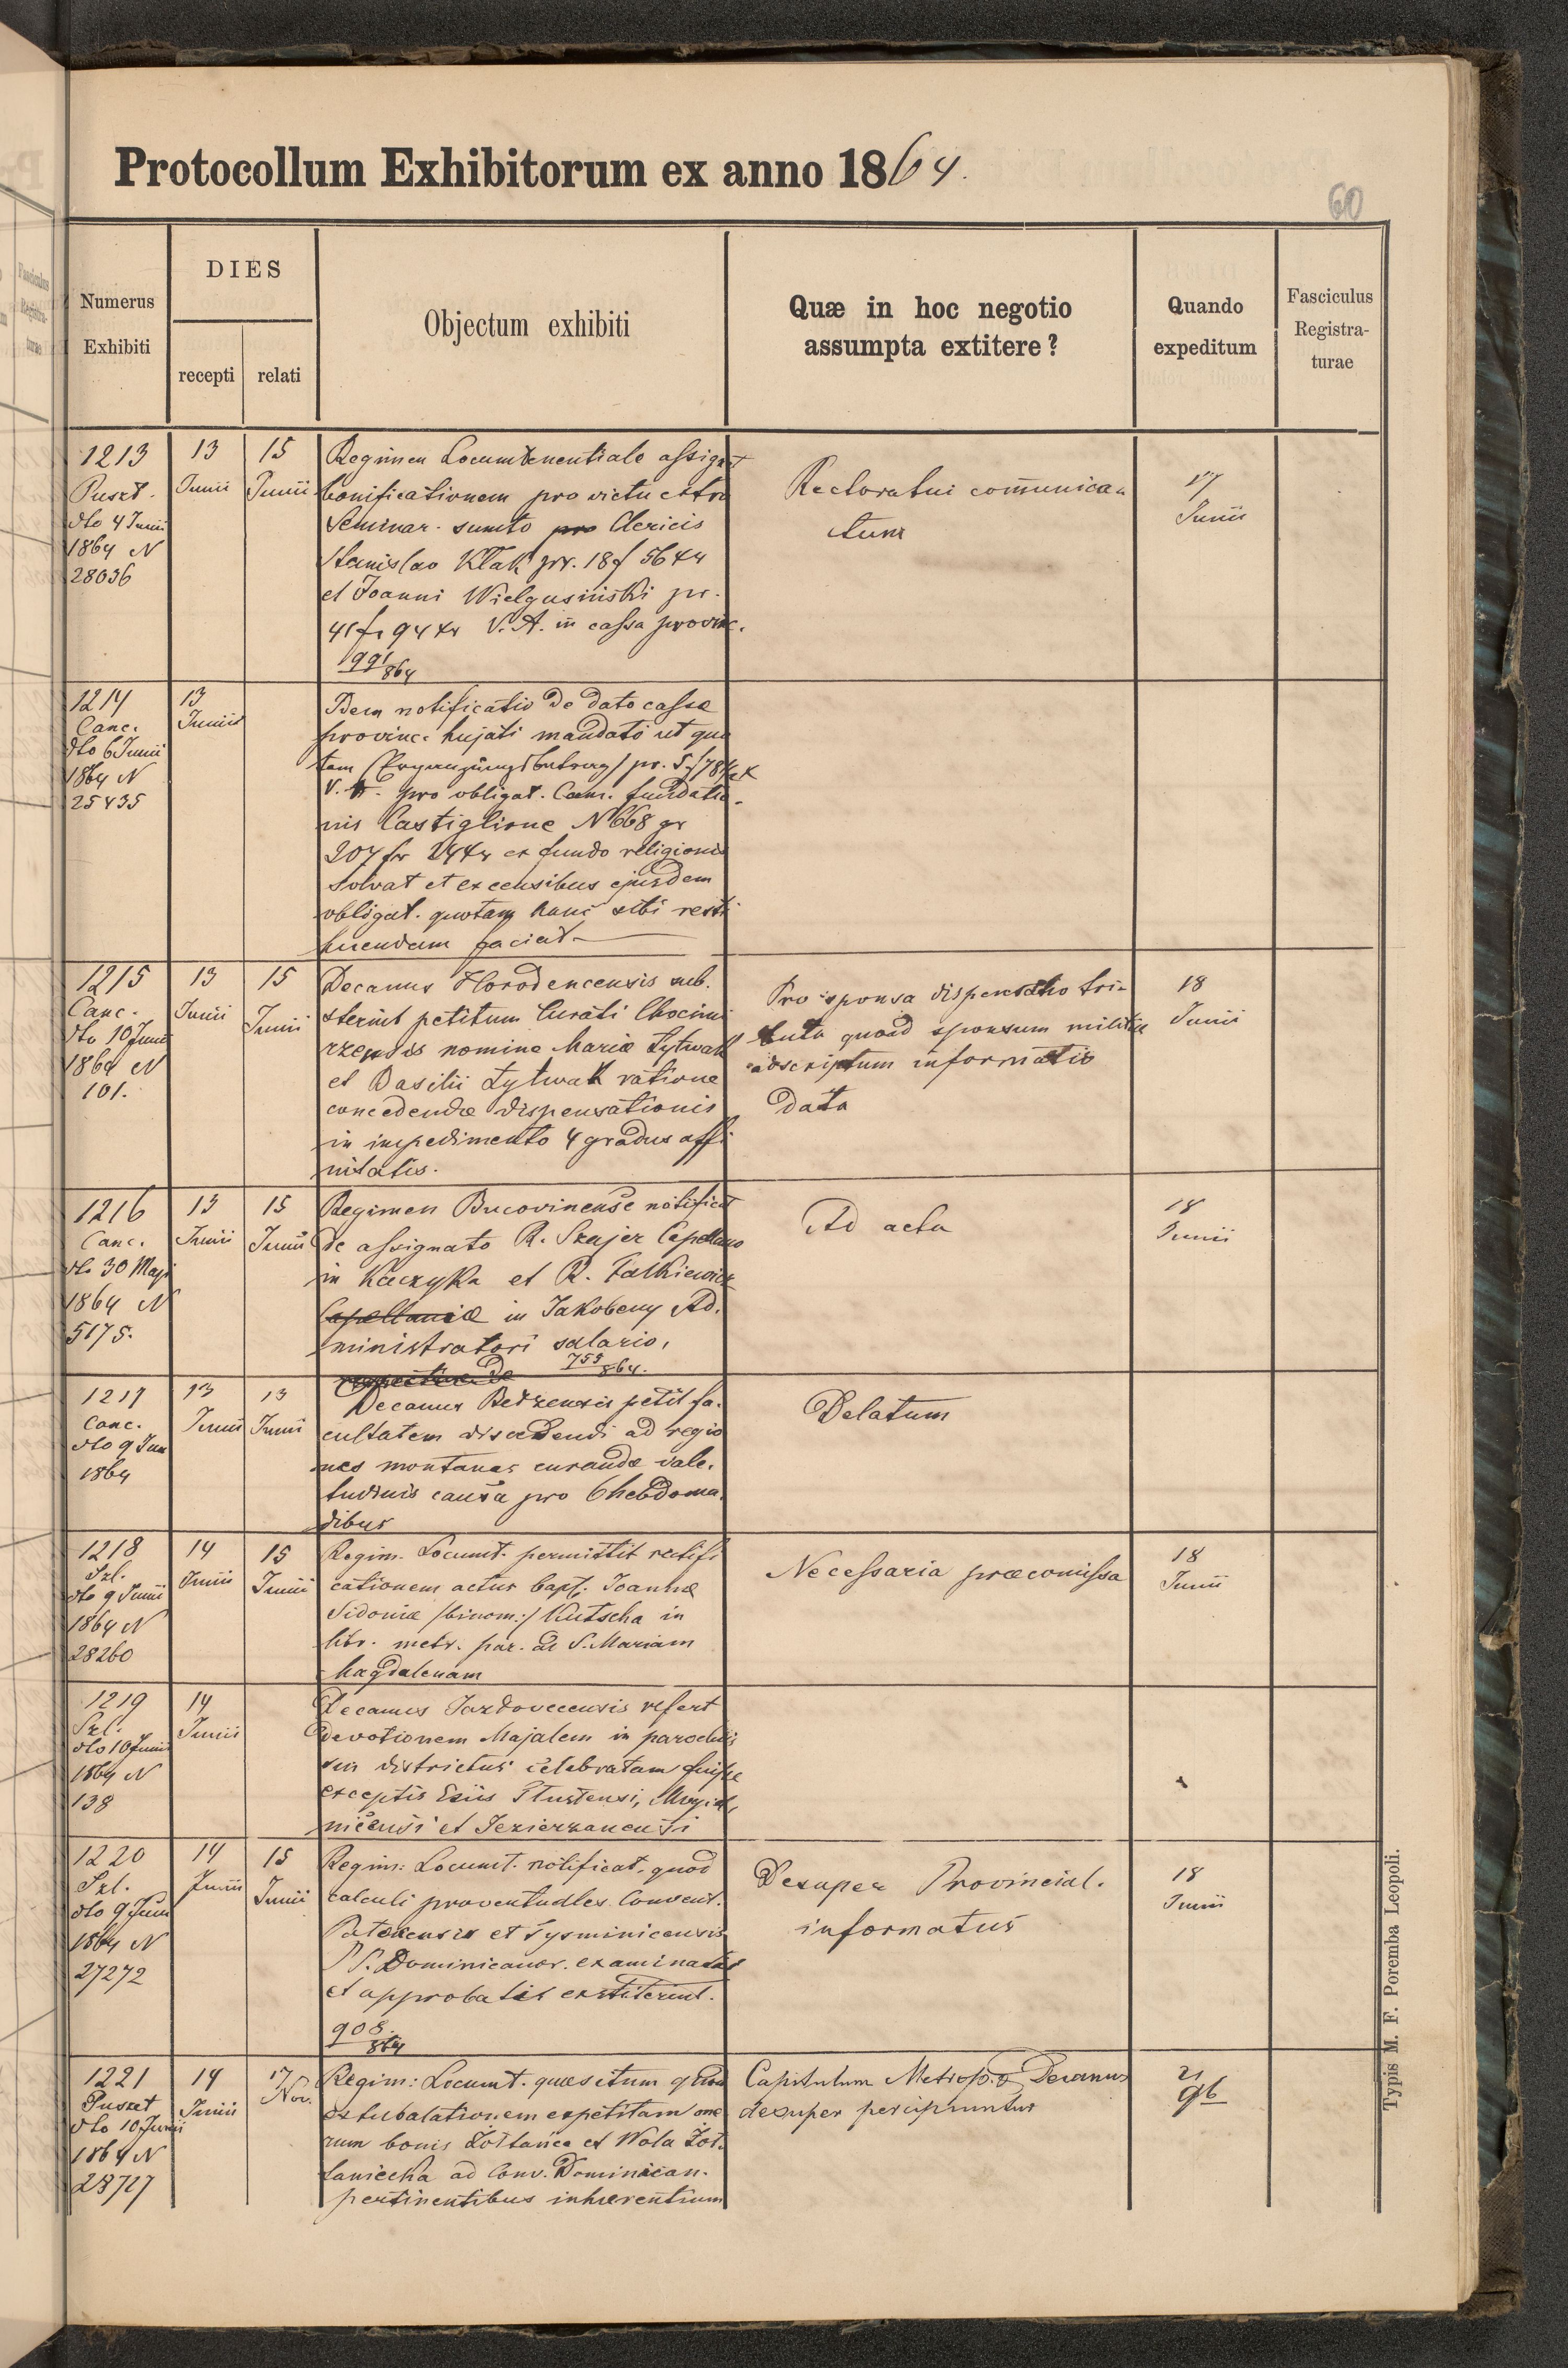 Protocollum Exhibitorum ex anno 1864.
60
Numerus
Exhibiti
DIES
recepti
relati
Objectum exhibiti
Quæ in hoc negotio
assumpta extitere?
Quando
expeditum
Fasciculus
Registra-
turae
1213
Puszt.
dto 4 Junii
1864 N
28036
13
Junii
15
Junii
Regimen Locumtenentiale assignat
bonificationem pro victu extra
Seminar. sumto pro Clericis
Stanislao Klak pr. 18f 56 xr
et Joanni Wielgusinski pr.
41 fr 94 xr V. A. in cassa provinc.
991/864
Rectoratui comunica-
tum
17
Junii
1214
Canc.
dto 6 Junii
1864 N
25435
13
Junii
notificatio de dato cassæ
provinc. hujati mandato ut quo
tam (Ergänzungsbetrag) pr. 5 f 78 xr
V. A. pro obligat. Cam. fundatio-
nis Castiglione N 668 pr
207 fr 24 xr ex fundo religionis
solvat et ex censibus ejusdem
obligat. quotam hanc sibi resti
tuendam faciat
1215
Canc.
dto 10 Junii
1864 N
101.
13
Junii
15
Junii
Decanus Horodencensis sub.
sternit petitum Curati Chocimi
rzensis nomine Mariæ Lytwak
et Basilii Lytwak ratione
concedendæ dispensationis
in impedimento 4 gradus affi
nitatis.
Pro sponsa dispensatio tri-
buta quoad sponsum militiæ
adscriptum informatio
data
18
Junii
1216
Canc.
dto 30 Maji
1864 N
5175.
13
Junii
15
Junii
Regimen Bucovinense notificat
de assignato R. Szajer Capellano
in Kaczyka et R. Falkiewicz
Capellaniæ in Jakobeny Ad.
ministratori salario,
respective de 755/864.
Ad acta
18
Junii
1217
Canc.
dto 9 Jun
1864
13
Junii
13
Junii
Decanus Betzensis petit fa.
cultatem discedendi ad regio
nes montanas curandæ vale.
tudinis causa pro 6 hebdoma.
dibus
Delatum
1218
Szl.
dto 9 Junii
1864 N
28260
14
Junii
15
Junii
Regim. Locumt. permittit rectifi
cationem actus bapt. Joannæ
Sidoniæ /binom:/ Kutscha in
libr. metr. par. ad S. Mariam
Magdalenam
Necessaria præcomissa
18
Junii
1219
Szl.
dto 10 Junii
1864 N
138
14
Junii
Decanus Jazdovecensis refert
devotionem Majalem in parochiis
sui districtus celebratam fuisse
exceptis Ecciis Tlustensi,
nicensi et Jezierzanensi
1220
Szl.
dto 9 Junii
1864 N
27272
14
Junii
15
Junii
Regim: Locumt. notificat, quod
calculi proventuales Convent.
Potokensis et Tysminicensis
P. P. Dominicanor. examinatis
et approbatis extiterint.
908./864
Desuper Provincial.
informatus
18
Junii
1221
Puszt
dto 10 Junii
1864 N
28727
14
Junii
17
Nov.
Regim: Locumt. quæsitum quoad
extabulationem expetitam one
rum bonis Żołtańce et Wola Żoł.
taniecka ad Conv. Dominican.
pertinentibus inhærentium
Capitulum Metrop. & Decanus
desuper percipiuntur
21
9b
Typis M. F. Poremba Leopoli.